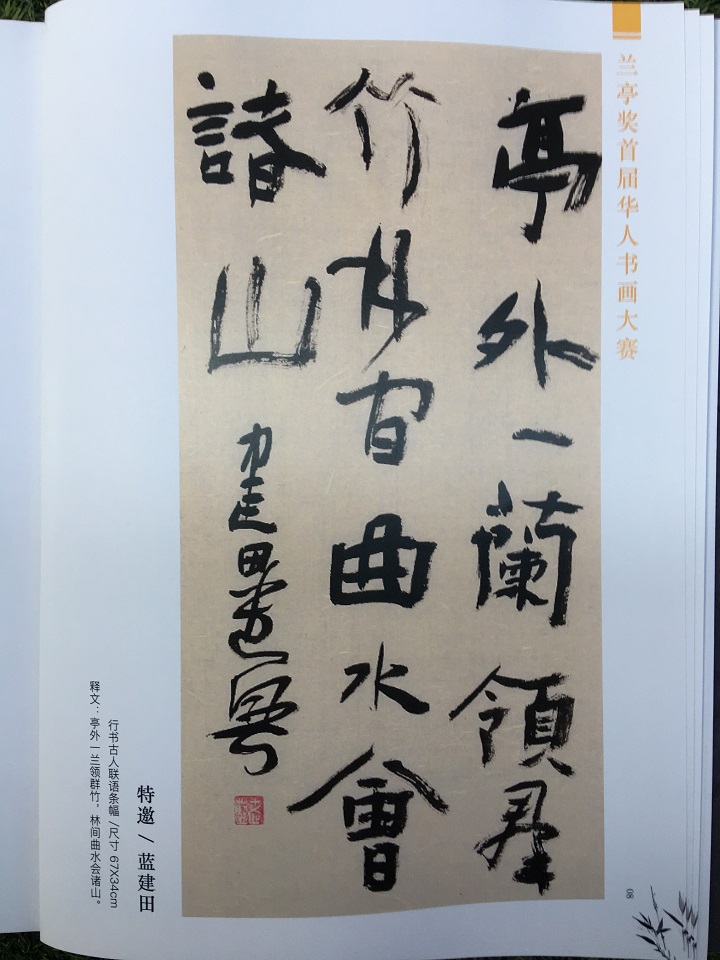 兰亭奖首届华人书画大赛
亭外一蘭領羣
竹林間曲水會
諸山
建田
特邀 / 蓝建田
行书古人联语条幅 /尺寸 67X34cm
释文：亭外一兰领群竹，林间曲水会诸山。